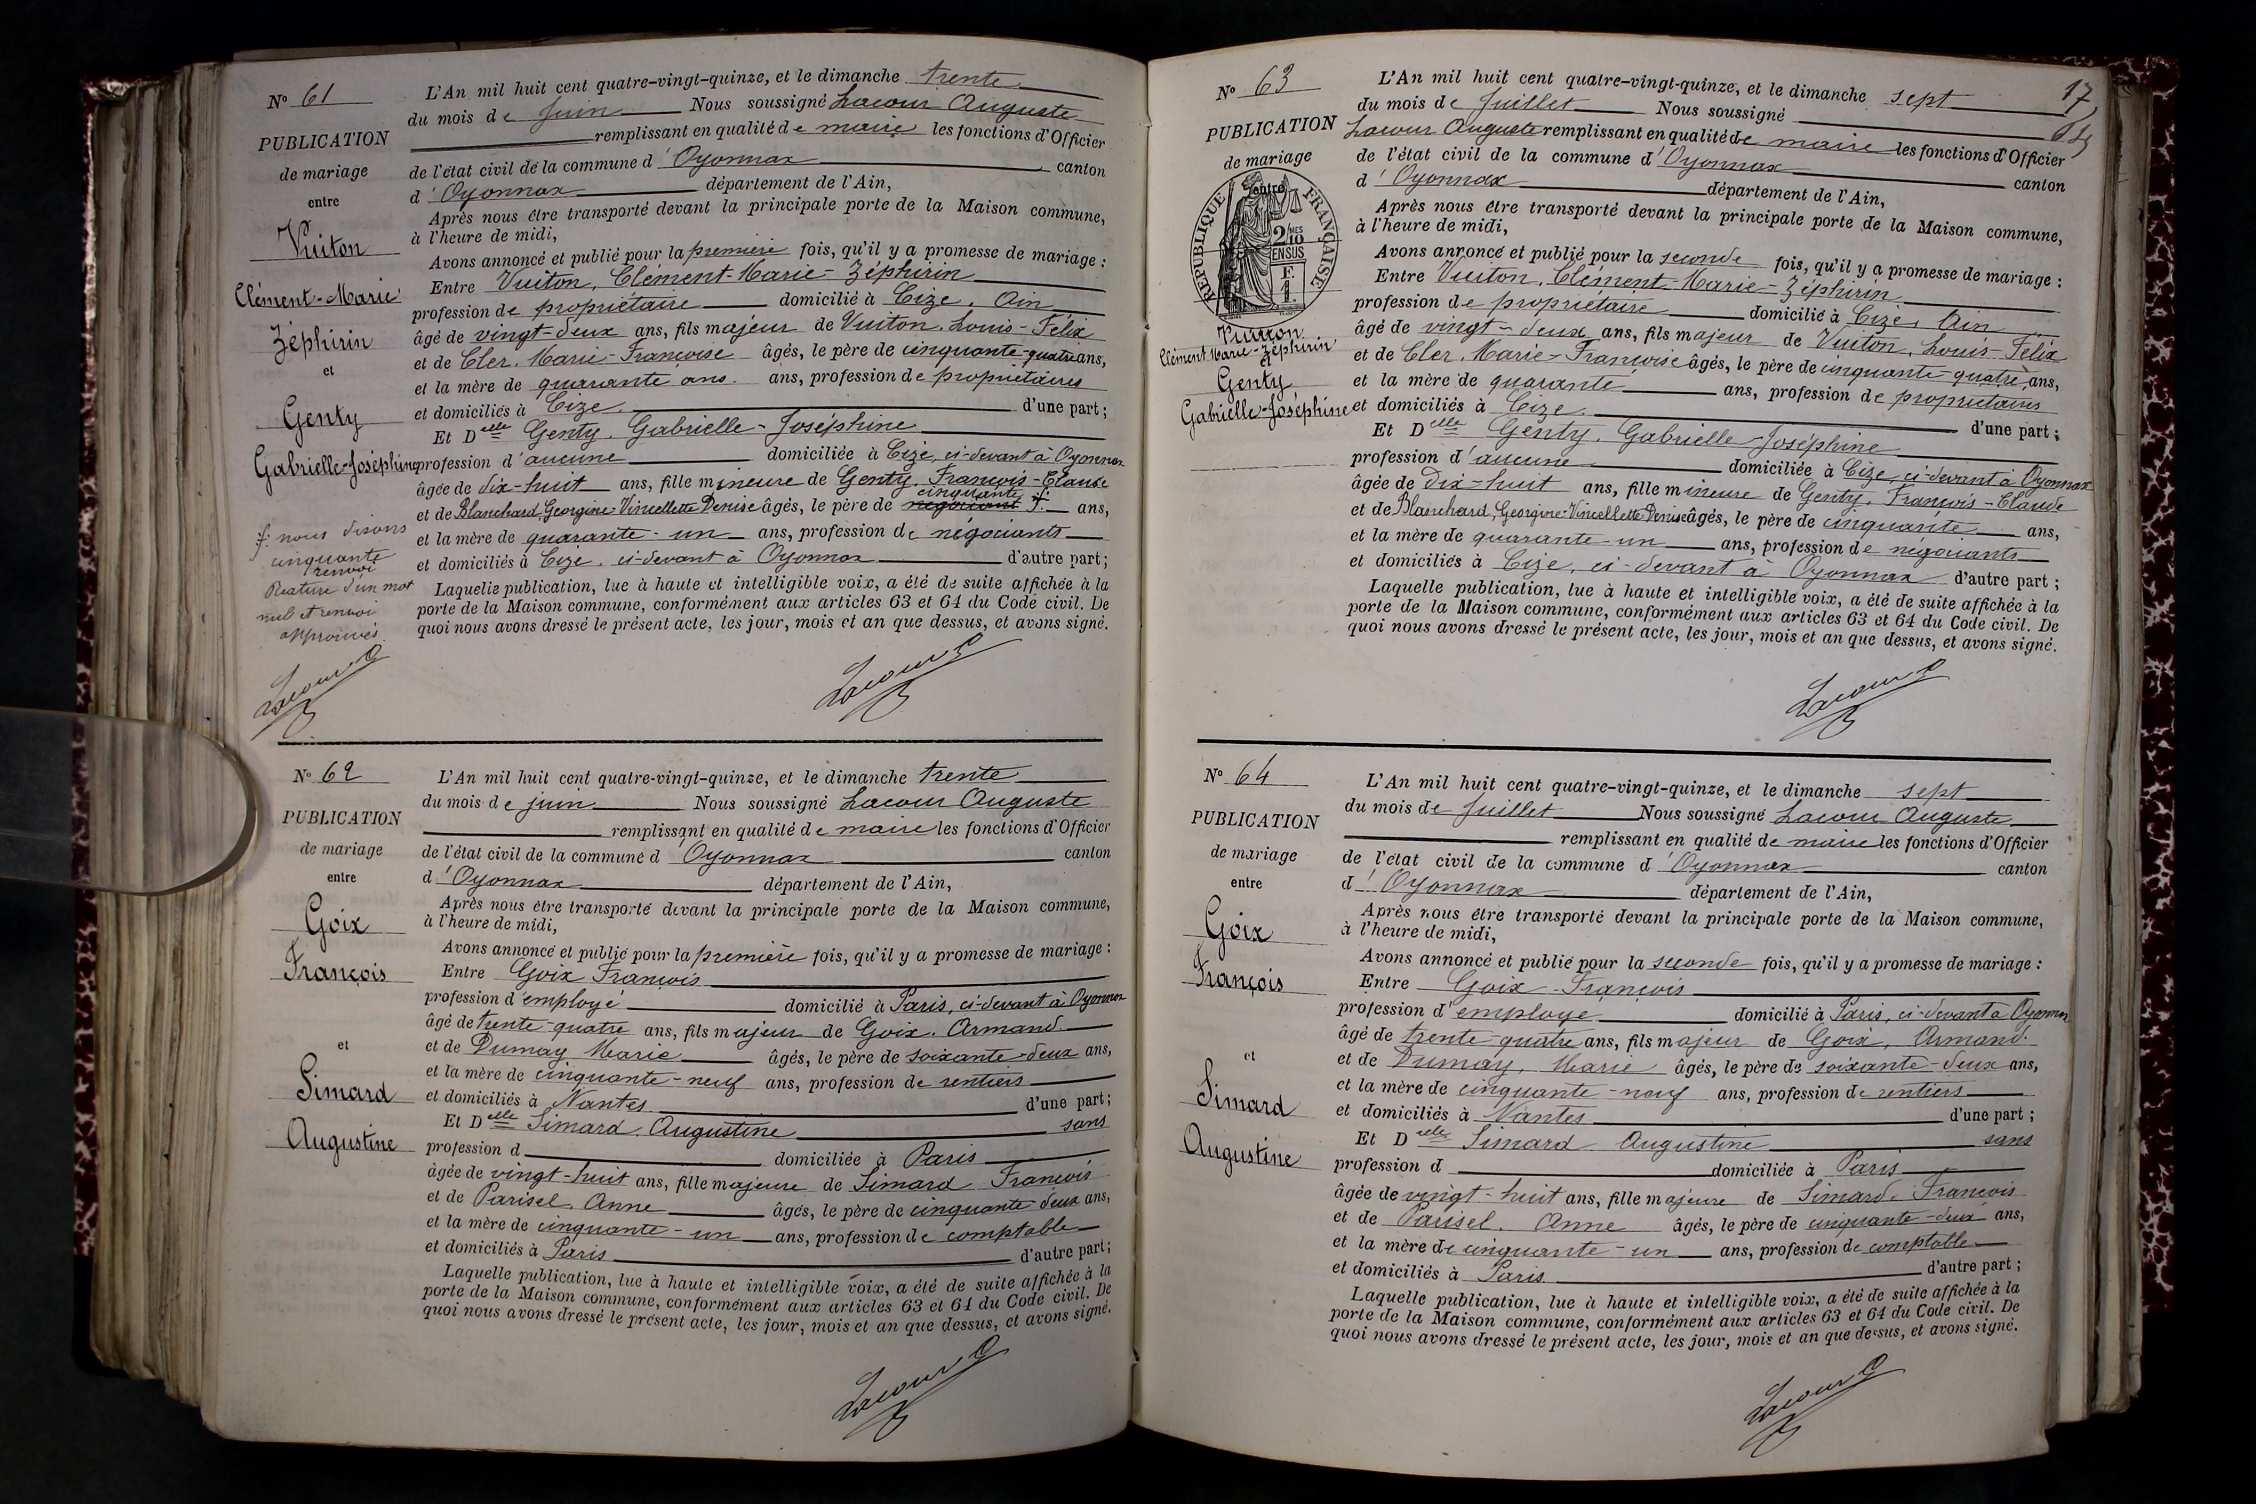 N° 61
PUBLICATION
de mariage
entre
Vuiton
Clément-Marie
Zéphirin
et
Genty
Gabrielle-Joséphine
L'An mil huit cent quatre-vingt-quinze, et le dimanche trente
du mois de Juin Nous soussigné Lacour Auguste
remplissant en qualité de maire les fonctions d'Officier
de l'état civil de la commune d'Oyonnax canton
d'Oyonnax département de l'Ain,
Après nous être transporté devant la principale porte de la Maison commune,
à l'heure de midi,
Avons annoncé et publié pour la première fois, qu'il y a promesse de mariage :
Entre Vuiton, Clément-Marie-Zéphirin
profession de propriétaire domicilié à Cize, Ain
âgé de vingt-deux ans, fils majeur de Vuiton, Louis-Félix
et de Cler, Marie-Françoise âgés, le père de cinquante-quatre ans,
et la mère de quarante ans. ans, profession de propriétaires
et domiciliés à Cize. d'une part ;
Et Delle Genty, Gabrielle-Joséphine
profession d'aucune domiciliée à Cize, ci-devant à Oyonnax
âgée de dix-huit ans, fille mineure de Genty, François-Claude
cinquante
et de Blanchard, Georgine-Vincellette Denise âgés, le père de négociant ans,
et la mère de quarante-un ans, profession de négociants
et domiciliés à Cize, ci-devant à Oyonnax d'autre part ;
Laquelle publication, lue à haute et intelligible voix, a été de suite affichée à la
porte de la Maison commune, conformément aux articles 63 et 64 du Code civil. De
quoi nous avons dressé le présent acte, les jour, mois et an que dessus, et avons signé.
nous disons
cinquante
renvoi
Rature d'un mot
nul et renvoi
approuvés.
Lacour
Lacour
N° 62
PUBLICATION
de mariage
entre
Goix
François
et
Simard
Augustine
L'An mil huit cent quatre-vingt-quinze, et le dimanche trente
du mois de juin Nous soussigné Lacour Auguste
remplissant en qualité de maire les fonctions d'Officier
de l'état civil de la commune d'Oyonnax canton
d'Oyonnax département de l'Ain,
Après nous être transporté devant la principale porte de la Maison commune,
à l'heure de midi,
Avons annoncé et publié pour la première fois, qu'il y a promesse de mariage :
Entre Goix François
profession d'employé domicilié à Paris, ci-devant à Oyonnax
âgé de trente-quatre ans, fils majeur de Goix, Armand.
et de Dumay Marie âgés, le père de soixante-deux ans,
et la mère de cinquante-neuf ans, profession de rentiers
et domiciliés à Nantes d'une part ;
Et Delle Simard, Augustine sans
profession d domiciliée à Paris
âgée de vingt-huit ans, fille majeure de Simard François
et de Parisel, Anne âgés, le père de cinquante deux ans,
et la mère de cinquante-un ans, profession de comptable
et domiciliés à Paris d'autre part ;
Laquelle publication, lue à haute et intelligible voix, a été de suite affichée à la
porte de la Maison commune, conformément aux articles 63 et 64 du Code civil. De
quoi nous avons dressé le présent acte, les jour, mois et an que dessus, et avons signé.
Lacour
17
N° 63
PUBLICATION
de mariage
entre
RÉPUBLIQUE FRANÇAISE
2/10MES
EN SUS
F.
1.
Vuiton
Clément Marie-Zéphirin
et
Genty
Gabrielle-Joséphine
L'An mil huit cent quatre-vingt-quinze, et le dimanche sept
du mois de Juillet Nous soussigné
Lacour Auguste remplissant en qualité de maire les fonctions d'Officier
de l'état civil de la commune d'Oyonnax
d'Oyonnax département de l'Ain, canton
Après nous être transporté devant la principale porte de la Maison commune,
à l'heure de midi,
Avons annoncé et publié pour la seconde fois, qu'il y a promesse de mariage :
Entre Vuiton, Clément-Marie-Zéphirin
profession de propriétaire domicilié à Cize, Ain
âgé de vingt-deux ans, fils majeur de Vuiton, Louis-Félix
et de Cler, Marie-Françoise âgés, le père de cinquante-quatre ans,
et la mère de quarante ans, profession de propriétaires
et domiciliés à Cize. d'une part ;
Et Delle Genty, Gabrielle-Joséphine
profession d'aucune domiciliée à Cize, ci-devant à Oyonnax
âgée de Dix-huit ans, fille mineure de Genty, François-Claude
et de Blanchard, Georgine-Vincellette Denise âgés, le père de cinquante ans,
et la mère de quarante-un ans, profession de négociants
et domiciliés à Cize, ci-devant à Oyonnax d'autre part ;
Laquelle publication, lue à haute et intelligible voix, a été de suite affichée à la
porte de la Maison commune, conformément aux articles 63 et 64 du Code civil. De
quoi nous avons dressé le présent acte, les jour, mois et an que dessus, et avons signé.
Lacour
N° 64
PUBLICATION
de mariage
entre
Goix
François
et
Simard
Augustine
L'An mil huit cent quatre-vingt-quinze, et le dimanche sept
du mois de Juillet Nous soussigné Lacour Auguste
remplissant en qualité de maire les fonctions d'Officier
de l'état civil de la commune d'Oyonnax canton
d'Oyonnax département de l'Ain,
Après nous être transporté devant la principale porte de la Maison commune,
à l'heure de midi,
Avons annoncé et publié pour la seconde fois, qu'il y a promesse de mariage :
Entre Goix François
profession d'employé domicilié à Paris, ci-devant à Oyonnax
âgé de trente-quatre ans, fils majeur de Goix, Armand.
et de Dumay, Marie âgés, le père de soixante-deux ans,
et la mère de cinquante-neuf ans, profession de rentiers
et domiciliés à Nantes d'une part ;
Et Delle Simard Augustine sans
profession d domiciliée à Paris
âgée de vingt-huit ans, fille majeure de Simard, François
et de Parisel, Anne âgés, le père de cinquante-deux ans,
et la mère de cinquante-un ans, profession de comptable
et domiciliés à Paris d'autre part ;
Laquelle publication, lue à haute et intelligible voix, a été de suite affichée à la
porte de la Maison commune, conformément aux articles 63 et 64 du Code civil. De
quoi nous avons dressé le présent acte, les jour, mois et an que dessus, et avons signé.
Lacour